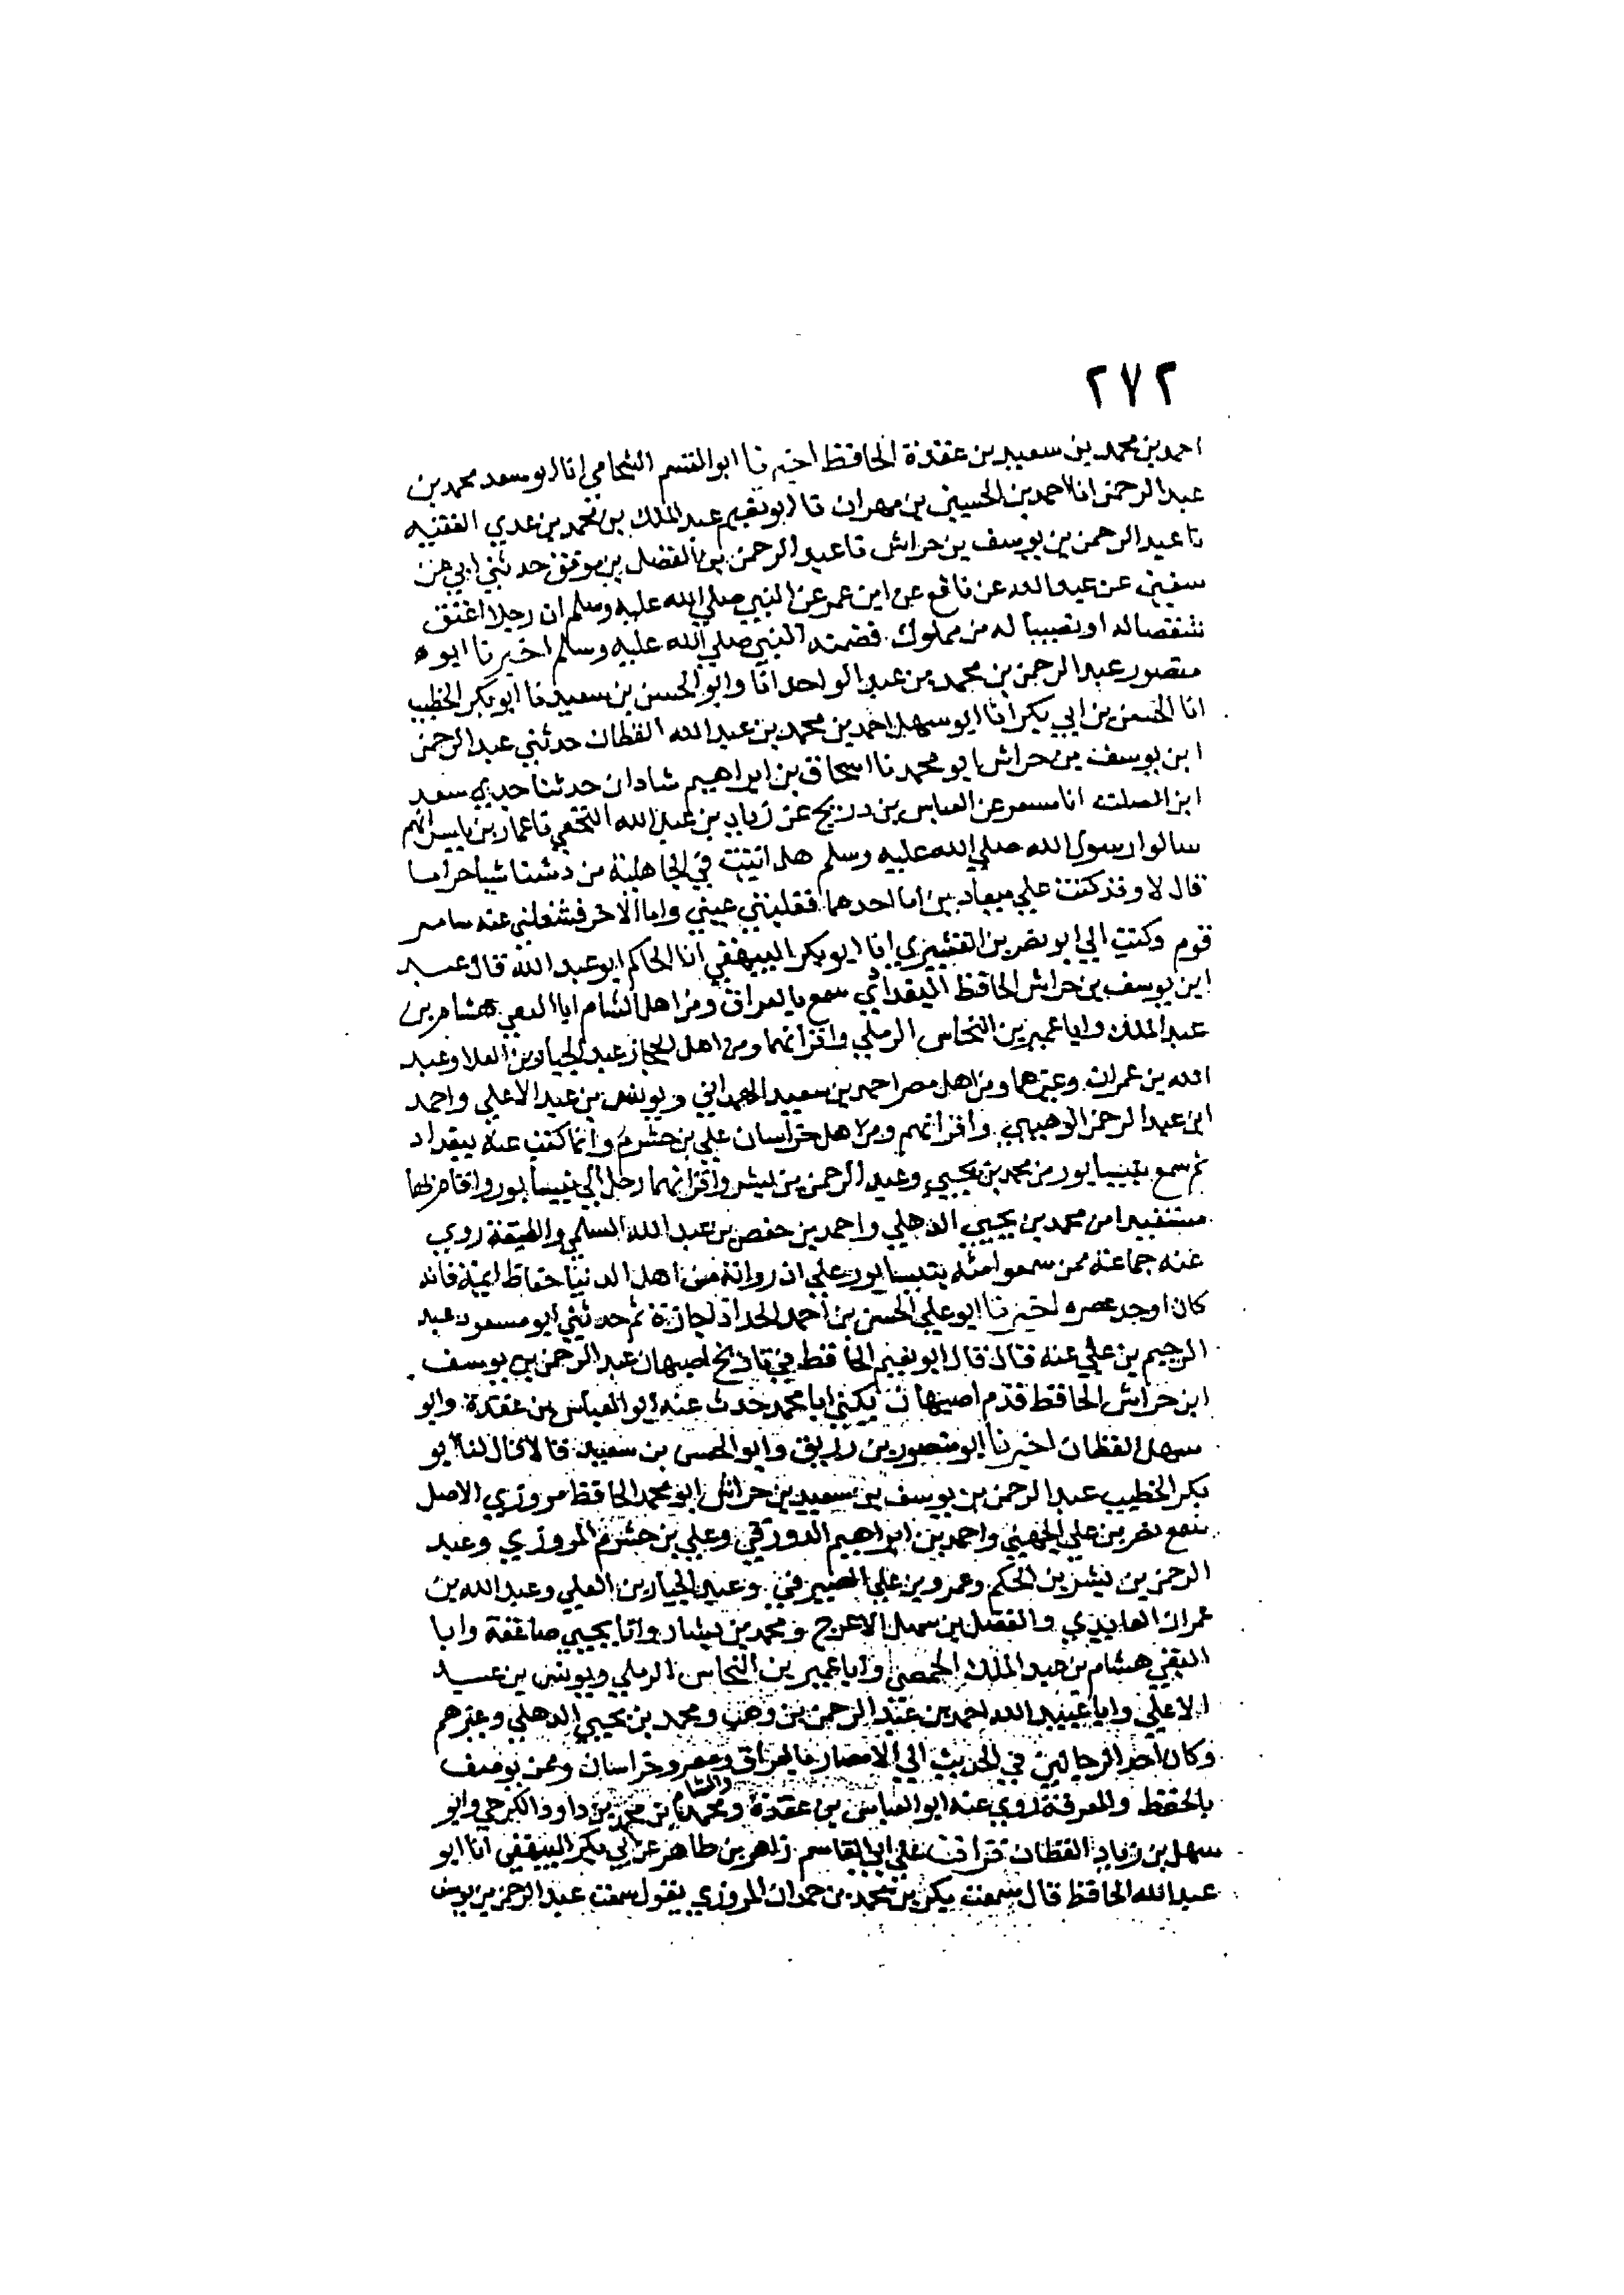 ٢٧٢
احمد بن محمد بن سعيد بن عقدة الحافظ اخبرنا ابو القسم الشحامي انا ابو سعد محمد بن
عبد الرحمن انا احمد بن الحسين بن مهران نا ابو نعيم عبد الملك بن محمد بن عدي الفقيه
نا عبد الرحمن بن يوسف بن خراش نا عبد الرحمن بن الفضل بن موفق حدثني ابي عن
سفين عن عبد الله عن نافع عن ابن عمر عن النبي صلي الله عليه وسلم ان رجلا اعتق
شقصا له او نصيبا له من مملوك فضمنه النبي صلي الله عليه وسلم اخبرنا ابو
منصور عبد الرحمن بن محمد بن عبد الواحد انا وابو الحسن بن سعيد نا ابو بكر الخطيب
انا الحسن بن ابي بكر انا ابو سهل احمد بن محمد بن عبد الله القطان حدثني عبد الرحمن
ابن يوسف بن خراش ابو محمد نا اسحاق بن ابراهيم شاذان حدثنا جدي سعد
ابن الصلت انا مسعر عن العباس بن دريح عن زياد بن عبد الله النخعي نا عمار بن ياسر انهم
سالوا رسول الله صلي الله عليه وسلم هل اتيت في الجاهلية من شيا حراما
قال لا وقد كنت علي ميعادين اما احدهما فغلبتني عيني واما الاخر فشغلني عنه سامر
قوم وكتب الي ابو نصر بن القشيري انا ابو بكر البيهقي انا الحاكم ابو عبد الله قال عبد
ابن يوسف بن خراش الحافظ البغدادي سمع بالعراق ومن اهل الشام ابا التقي هشام بن
عبد الملك وابا عمير بن النحاس الرملي واقرانهما ومن اهل الحجاز عبد الجبار بن العلا وعبد
الله بن عمران وغيرهما ومن اهل مصر احمد بن سعيد الهمداني ويونس بن عبد الاعلي واحمد
ابن عبد الرحمن الوهبي واقرانهم ومن اهل خراسان علي بن خشرم وانما كتب عنه ببغداد
ثم سمع بنيسابور من محمد بن يحيي وعبد الرحمن بن بشر واقرانهما رحل الي نيسابور واقام بها
مستفيدا من محمد بن يحيي الذهلي واحمد بن حفص بن عبد الله السلمي والطبقة روي
عنه جماعة ممن سمعوا منه بنيسابور علي ان رواته من اهل الدنيا حفاظ ايمة فانه
كان اوحد عصره اخبرنا ابو علي الحسن بن احمد الحداد اجازة ثم حدثني ابو مسعود عبد
الرحيم بن علي عنه قال قال ابو نعيم الحافظ في تاريخ اصبهان عبد الرحمن بن يوسف
ابن خراش الحافظ قدم اصبهان يكني ابا محمد حدث عنه ابو العباس بن عقدة وابو
سهل القطان اخبرنا ابو منصور بن زريق وابو الحسن بن سعيد قالا قال لنا ابو
بكر الخطيب عبد الرحمن بن يوسف بن سعيد بن خراش ابو محمد الحافظ مروزي الاصل
سمع نصر بن علي الجهضمي واحمد بن ابراهيم الدورقي وعلي بن خشرم المروزي وعبد
الرحمن بن بشر بن الحكم وعمرو بن علي الصيرفي وعبد الجبار بن العلي وعبد الله بن
عمران العابدي والفضل بن سهل الاعرج ومحمد بن بشار وابا يحيي صاعقة وابا
التقي هشام بن عبد الملك الحمصي وابا عمير بن النحاس الرملي ويونس بن عبد
الاعلي وابا عبيد الله احمد بن عبد الرحمن بن وهب ومحمد بن يحيي الذهلي وغيرهم
وكان احد الرحالين في الحديث الي الامصار بالعراق والشام ومصر وخراسان وممن يوصف
بالحفظ والمعرفة روي عنه ابو العباس بن عقدة ومحمد بن محمد بن داود الكرجي وابو
سهل بن زياد القطان قرات علي ابي القاسم زاهر بن طاهر عن ابي بكر البيهقي انا ابو
عبد الله الحافظ قال سمعت بكر بن محمد بن حمدان المروزي يقول سمعت عبد الرحمن بن يوسف